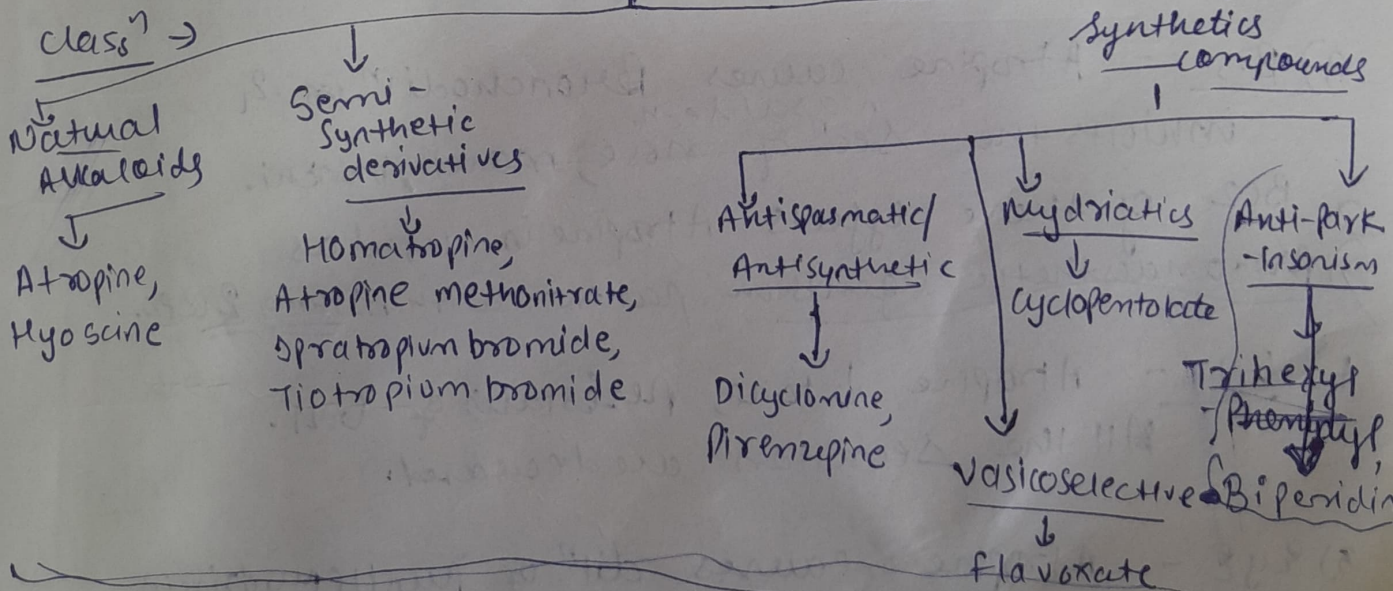 classⁿ →
Natural
Alkaloids
Atropine,
Hyoscine
Semi-
Synthetic
derivatives
Homatropine,
Atropine methonitrate,
Ipratropium bromide,
Tiotropium bromide
Synthetics
compounds
Antispasmatic/
Antisynthetic
Dicyclomine,
Pirenzepine
Vasicoselective
flavoxate
Mydriatics
cyclopentolate
Anti-park
-Insonism
Trihexyl
Biperidin